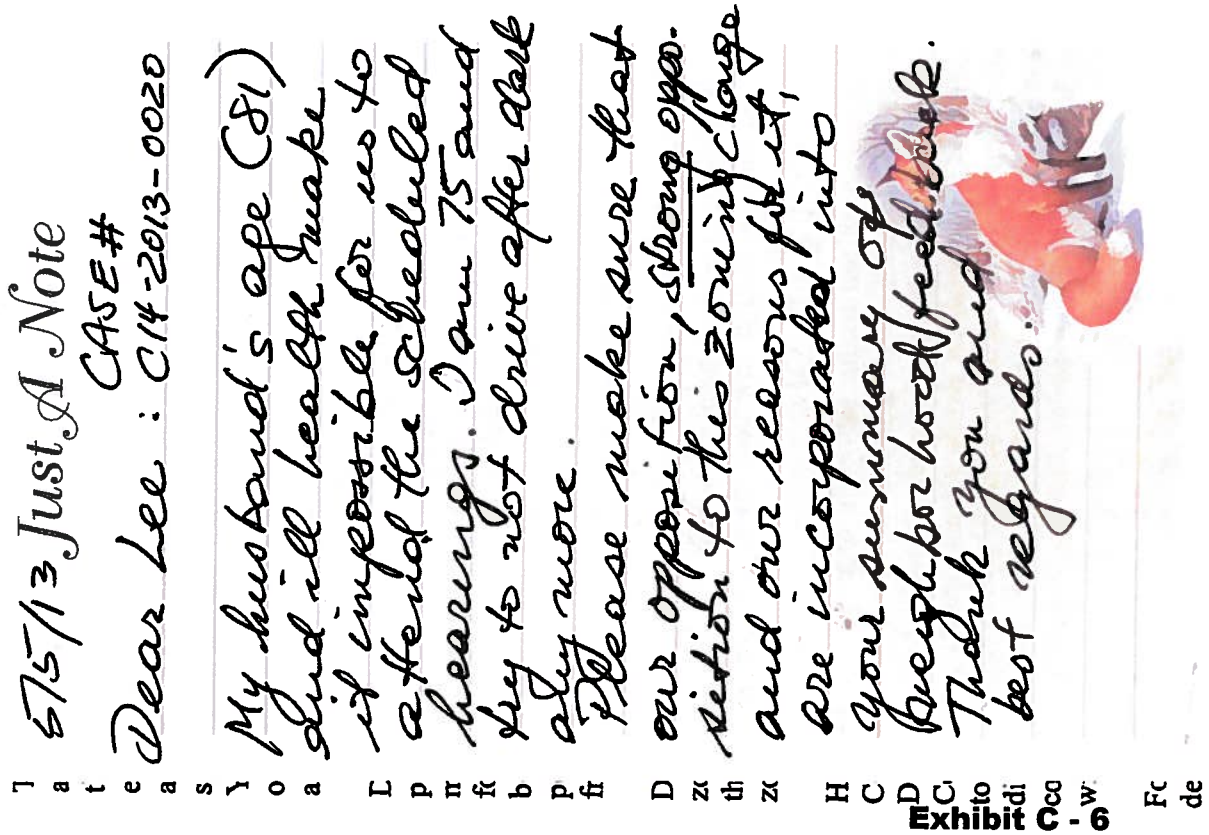 5/5/13 Just A Note
CASE #
Dear Lee : C14-2013-0020
My husband's age (81)
and ill health make
it impossible for us to
attend the scheduled
hearings. I am 75 and
try to not drive after dark
any more.
Please make sure that
our opposition, strong oppo-
sition to this zoning change
and our reasons for it,
are incorporated into
your summary of
neighborhood feedback.
Thank you and
best regards.
T
a
t
e
a
s
Y
o
a
L
p
n
fc
b
p
fr
D
zc
th
zc
H
C
D
C
to
di
co
w
Fc
de
Exhibit C - 6